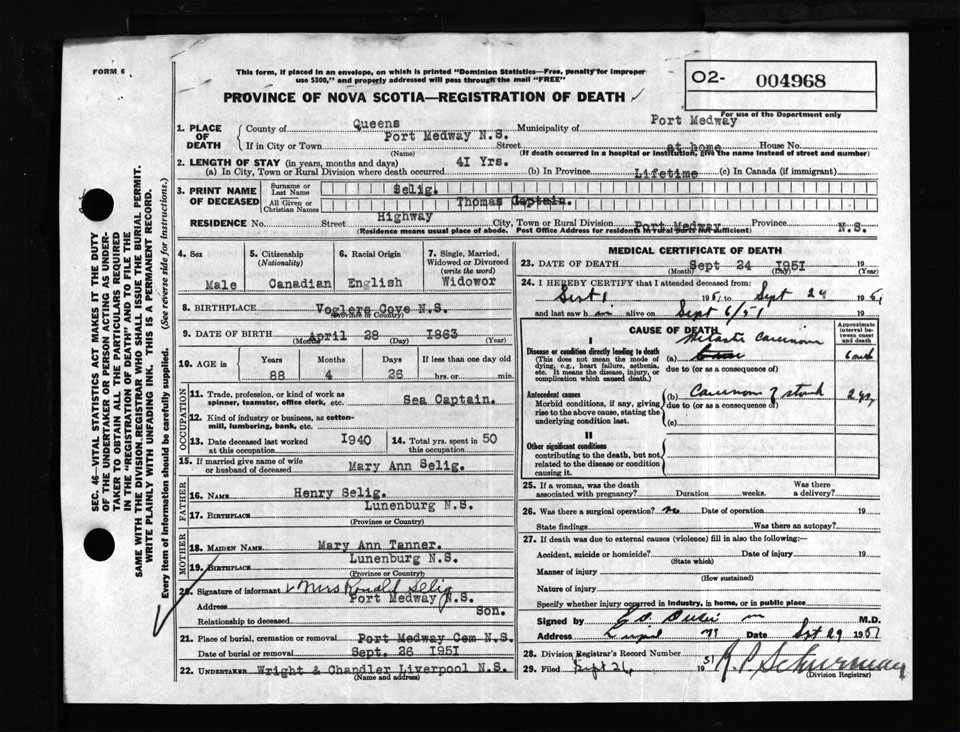 FORM 6
This form, if placed in an envelope, on which is printed "Dominion Statistics—Free, penalty for improper
use $300," and properly addressed will pass through the mail "FREE"
O2- 004968
For use of the Department only
PROVINCE OF NOVA SCOTIA—REGISTRATION OF DEATH
1. PLACE OF DEATH County of Queens Municipality of Port Medway
If in City or Town Port Medway N.S. Street at home House No.
(Name) (If death occurred in a hospital or institution, give the name instead of street and number)
2. LENGTH OF STAY (in years, months and days) 4I Yrs.
(a) In City, Town or Rural Division where death occurred (b) In Province Lifetime (c) In Canada (if immigrant)
3. PRINT NAME OF DECEASED Surname or Last Name Selig.
All Given or Christian Names Thomas Captain.
RESIDENCE No. Street Highway City, Town or Rural Division Port Medway Province N.S.
(Residence means usual place of abode. Post Office Address for residents in rural parts not sufficient)
4. Sex Male
5. Citizenship (Nationality) Canadian
6. Racial Origin English
7. Single, Married, Widowed or Divorced (write the word) Widowor
8. BIRTHPLACE Voglers Cove N.S.
(Province or Country)
9. DATE OF BIRTH April 28 I863
(Month) (Day) (Year)
10. AGE in Years Months Days If less than one day old
88 4 26 hrs. or min.
OCCUPATION
11. Trade, profession, or kind of work as
spinner, teamster, office clerk, etc. Sea Captain.
12. Kind of industry or business, as cotton-
mill, lumbering, bank, etc.
13. Date deceased last worked at this occupation I940
14. Total yrs. spent in this occupation 50
15. If married give name of wife
or husband of deceased Mary Ann Selig.
FATHER
16. NAME Henry Selig.
17. BIRTHPLACE Lunenburg N.S.
(Province or Country)
MOTHER
18. MAIDEN NAME Mary Ann Tanner.
19. BIRTHPLACE Lunenburg N.S.
(Province or Country)
20. Signature of informant Mrs Ronald Selig
Address Port Medway N.S.
Relationship to deceased Son.
21. Place of burial, cremation or removal Port Medway Cem N.S.
Date of burial or removal Sept. 26 I95I
22. UNDERTAKER Wright & Chandler Liverpool N.S.
(Name and address)
MEDICAL CERTIFICATE OF DEATH
23. DATE OF DEATH Sept 24 I95I 19
(Month) (Day) (Year)
24. I HEREBY CERTIFY that I attended deceased from:
Sept 1 1951 to Sept 24 1951
and last saw him alive on Sept 6/51
CAUSE OF DEATH
Approximate interval between onset and death
I
Disease or condition directly leading to death
(This does not mean the mode of
dying, e.g., heart failure, asthenia,
etc. It means the disease, injury, or
complication which caused death.)
(a)
due to (or as a consequence)
Antecedent causes
Morbid conditions, if any, giving
rise to the above cause, stating the
underlying condition last.
(b)
due to (or as a consequence)
(c)
II
Other significant conditions
contributing to the death, but not
related to the disease or condition
causing it.
25. If a woman, was the death
associated with pregnancy? Duration weeks. Was there
a delivery?
26. Was there a surgical operation? no Date of operation 19
State findings Was there an autopsy?
27. If death was due to external causes (violence) fill in also the following:—
Accident, suicide or homicide? Date of injury 19
(State which)
Manner of injury
(How sustained)
Nature of injury
Specify whether injury occurred in industry, in home, or in public place
Signed by M.D.
Address Date Sept 29 1951
28. Division Registrar's Record Number
29. Filed Sept 26 1951
(Division Registrar)
SEC. 46—VITAL STATISTICS ACT MAKES IT THE DUTY
OF THE UNDERTAKER OR PERSON ACTING AS UNDER-
TAKER TO OBTAIN ALL THE PARTICULARS REQUIRED
IN THE "REGISTRATION OF DEATH" AND TO FILE THE
SAME WITH THE DIVISION REGISTRAR WHO SHALL ISSUE THE BURIAL PERMIT.
WRITE PLAINLY WITH UNFADING INK. THIS IS A PERMANENT RECORD.
Every item of Information should be carefully supplied. (See reverse side for instructions.)